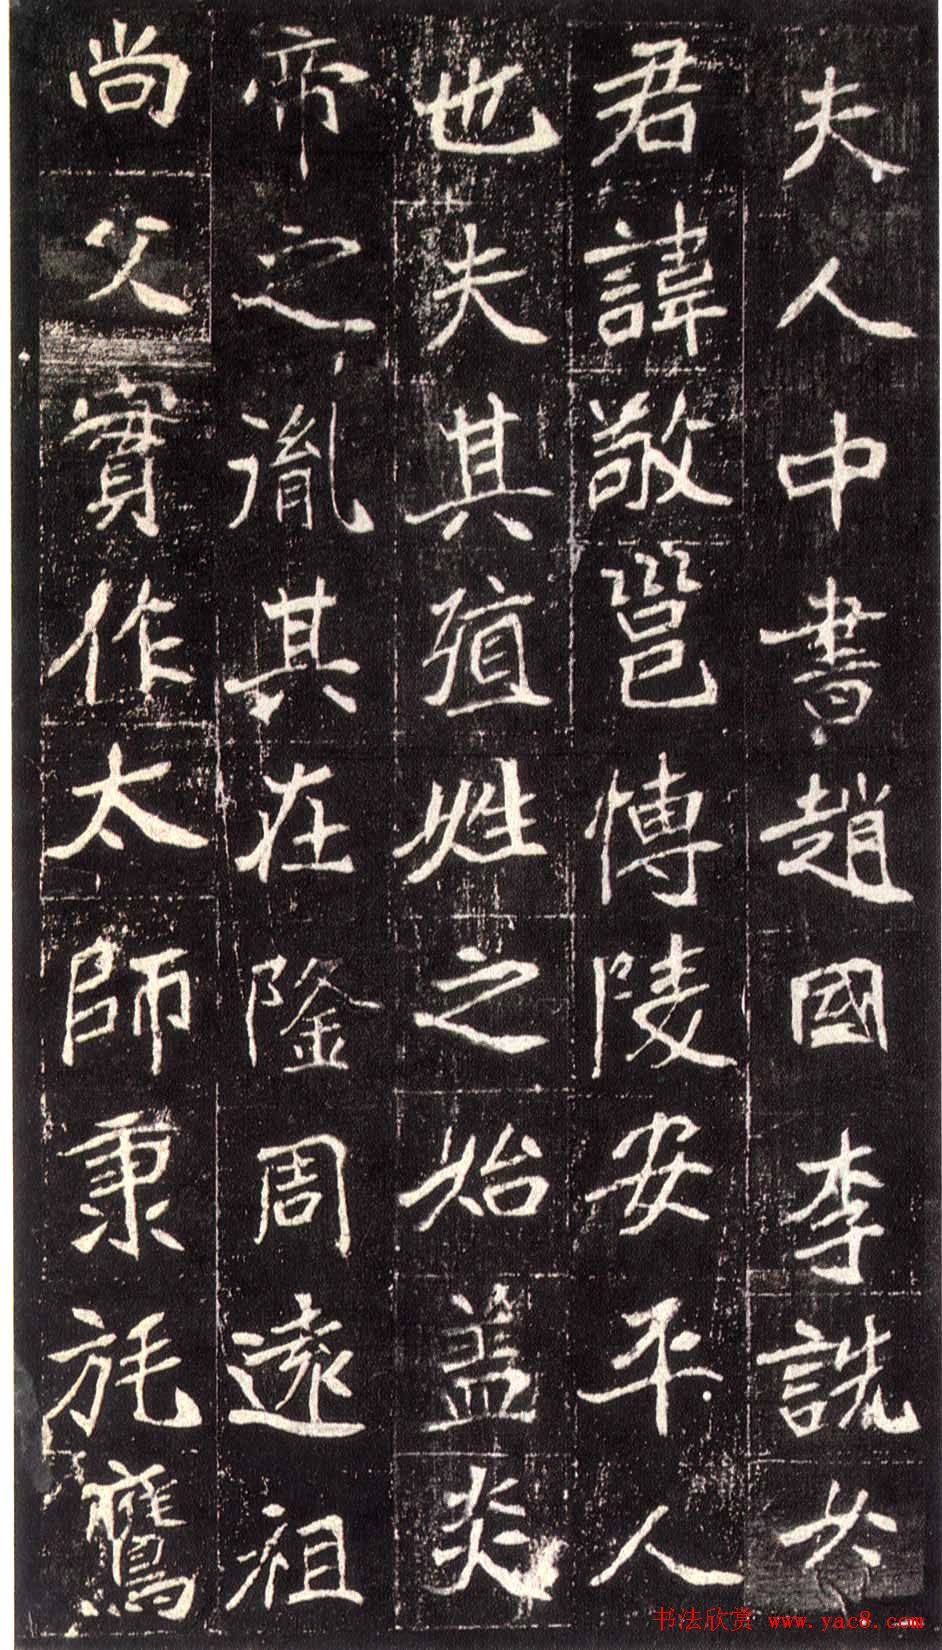 夫人中書趙國李詵女
君諱敬邕博陵安平人
也夫其殖姓之始盖炎
帝之胤其在隆周遠祖
尚父實作太師秉旄鷹
书法欣赏 www.yac8.com